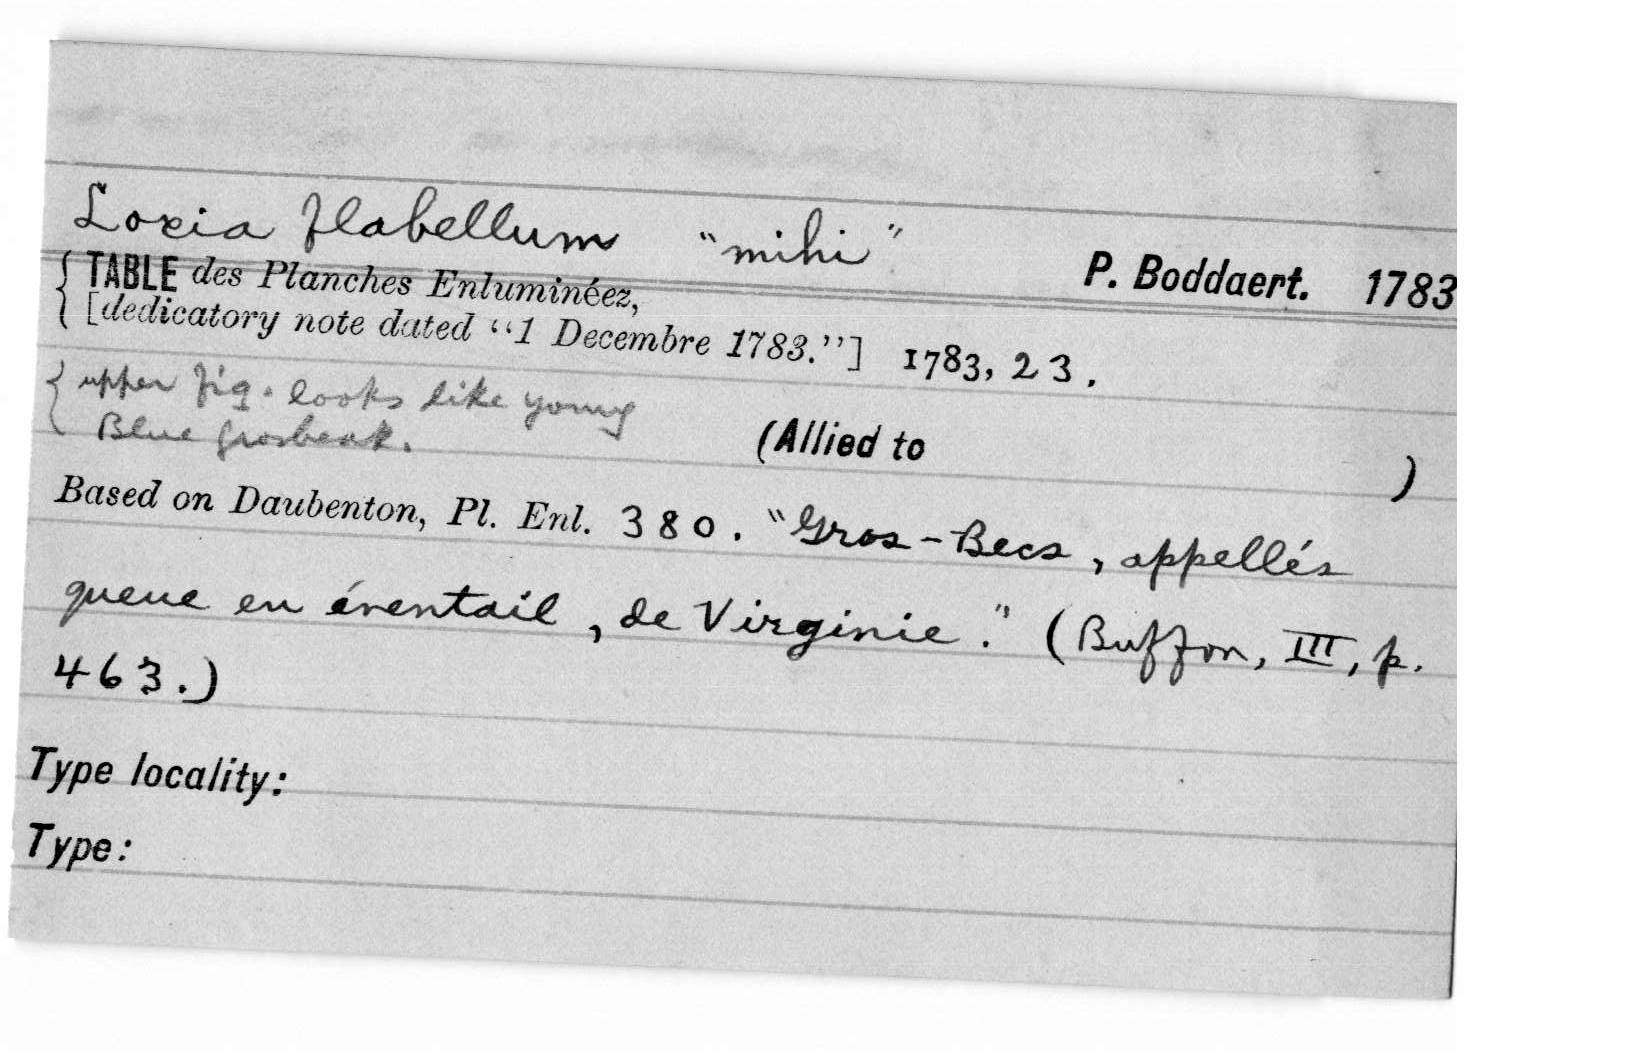 Loxia flabellum "mihi"
P. Boddaert. 1783
{ TABLE des Planches Enluminéez,
[dedicatory note dated "1 Decembre 1783."] 1783, 23.
{ upper fig. looks like young
Blue grosbeak.
(Allied to )
Based on Daubenton, Pl. Enl. 380. "Gros-Becs, appellés
queue en éventail, de Virginie." (Buffon, III, p.
463.)
Type locality:
Type: